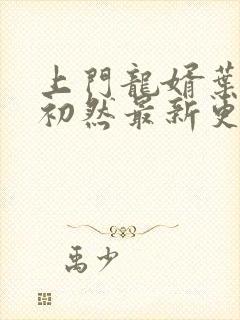 上門龍婿葉
初然最新更
禹少